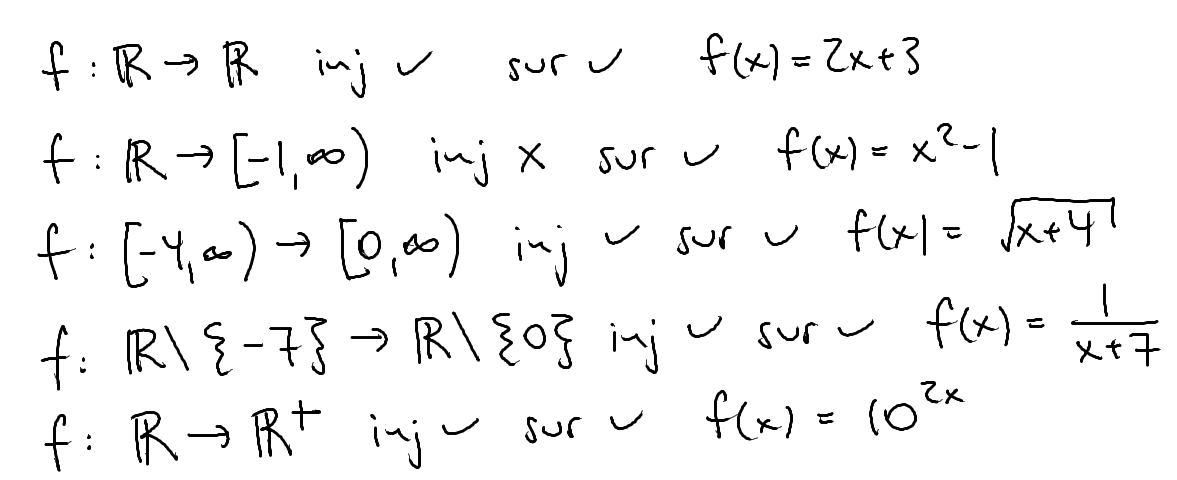 f : ℝ → ℝ inj ✓ sur ✓ f(x) = 2x+3
f : ℝ → [-1,∞) inj x sur ✓ f(x) = x²-1
f : [-4,∞) → [0,∞) inj ✓ sur ✓ f(x) = √(x+4)
f : ℝ\{-7} → ℝ\{0} inj ✓ sur ✓ f(x) = 1/(x+7)
f : ℝ → ℝ⁺ inj ✓ sur ✓ f(x) = 10²ˣ